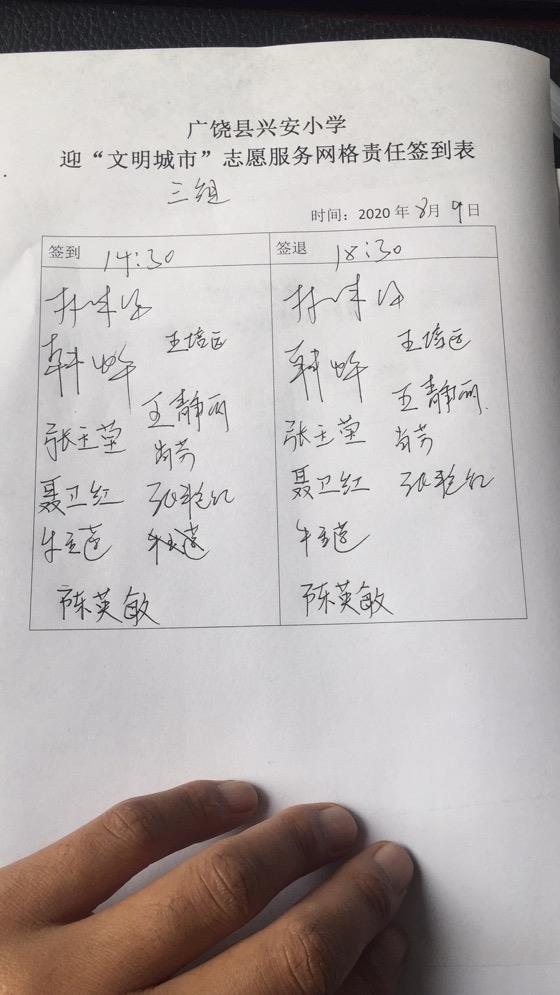 广饶县兴安小学
迎“文明城市”志愿服务网格责任签到表
三组
时间：2020年8月9日
签到 14:30 签退 18:30
王培远 王培远
韩 韩
王静丽 王静丽
张玉莹 肖芳 张玉莹 肖芳
聂卫红 张艳红 聂卫红 张艳红
牛玉莲 牛玉莲 牛玉莲
陈英敏 陈英敏